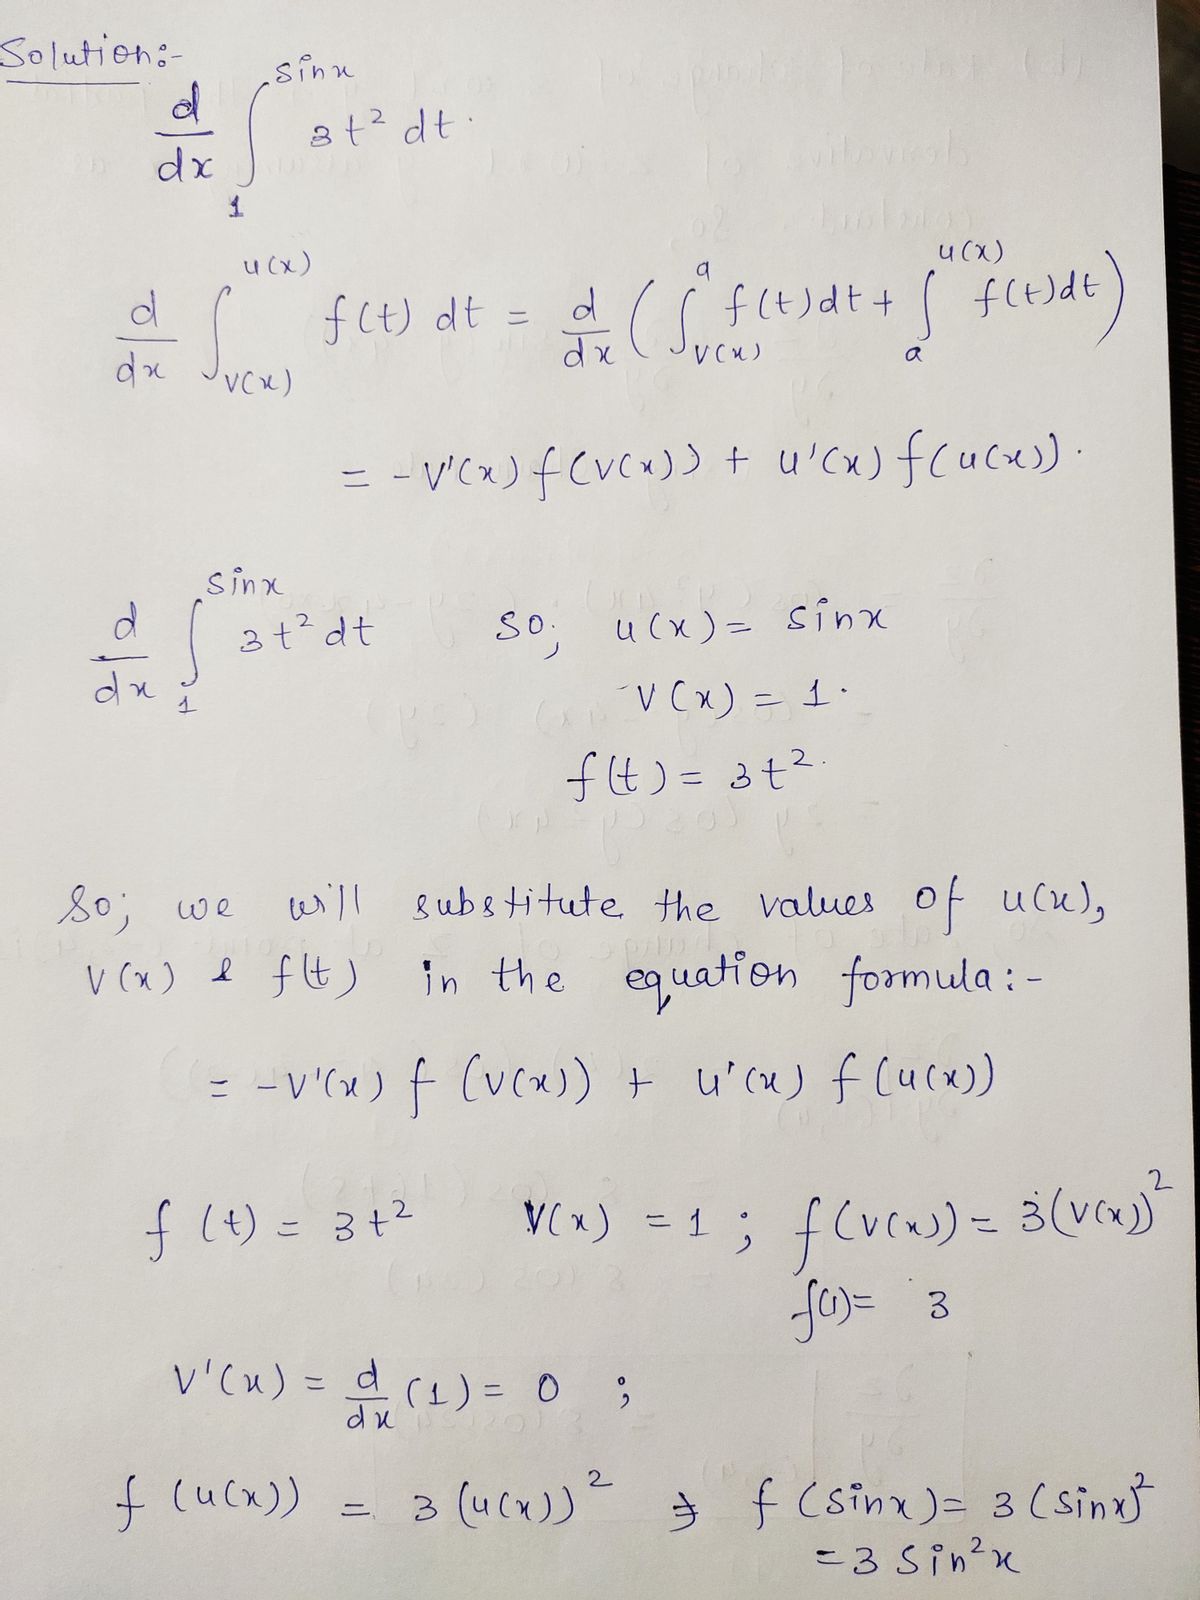 Solution:-
d/dx ∫₁^sinx 3t² dt.
d/dx ∫_v(x)^u(x) f(t) dt = d/dx (∫_v(x)^a f(t)dt + ∫_a^u(x) f(t)dt)
= -v'(x) f(v(x)) + u'(x) f(u(x)).
d/dx ∫₁^sinx 3t² dt so; u(x) = sinx
v(x) = 1.
f(t) = 3t².
So; we will substitute the values of u(x),
v(x) & f(t) in the equation formula:-
= -v'(x) f (v(x)) + u'(x) f (u(x))
f (t) = 3t² v(x) = 1 ; f(v(x)) = 3(v(x))²
f(1) = 3
v'(x) = d/dx (1) = 0 ;
f (u(x)) = 3 (u(x))² ⇒ f (sinx) = 3 (sinx)²
= 3 sin²x